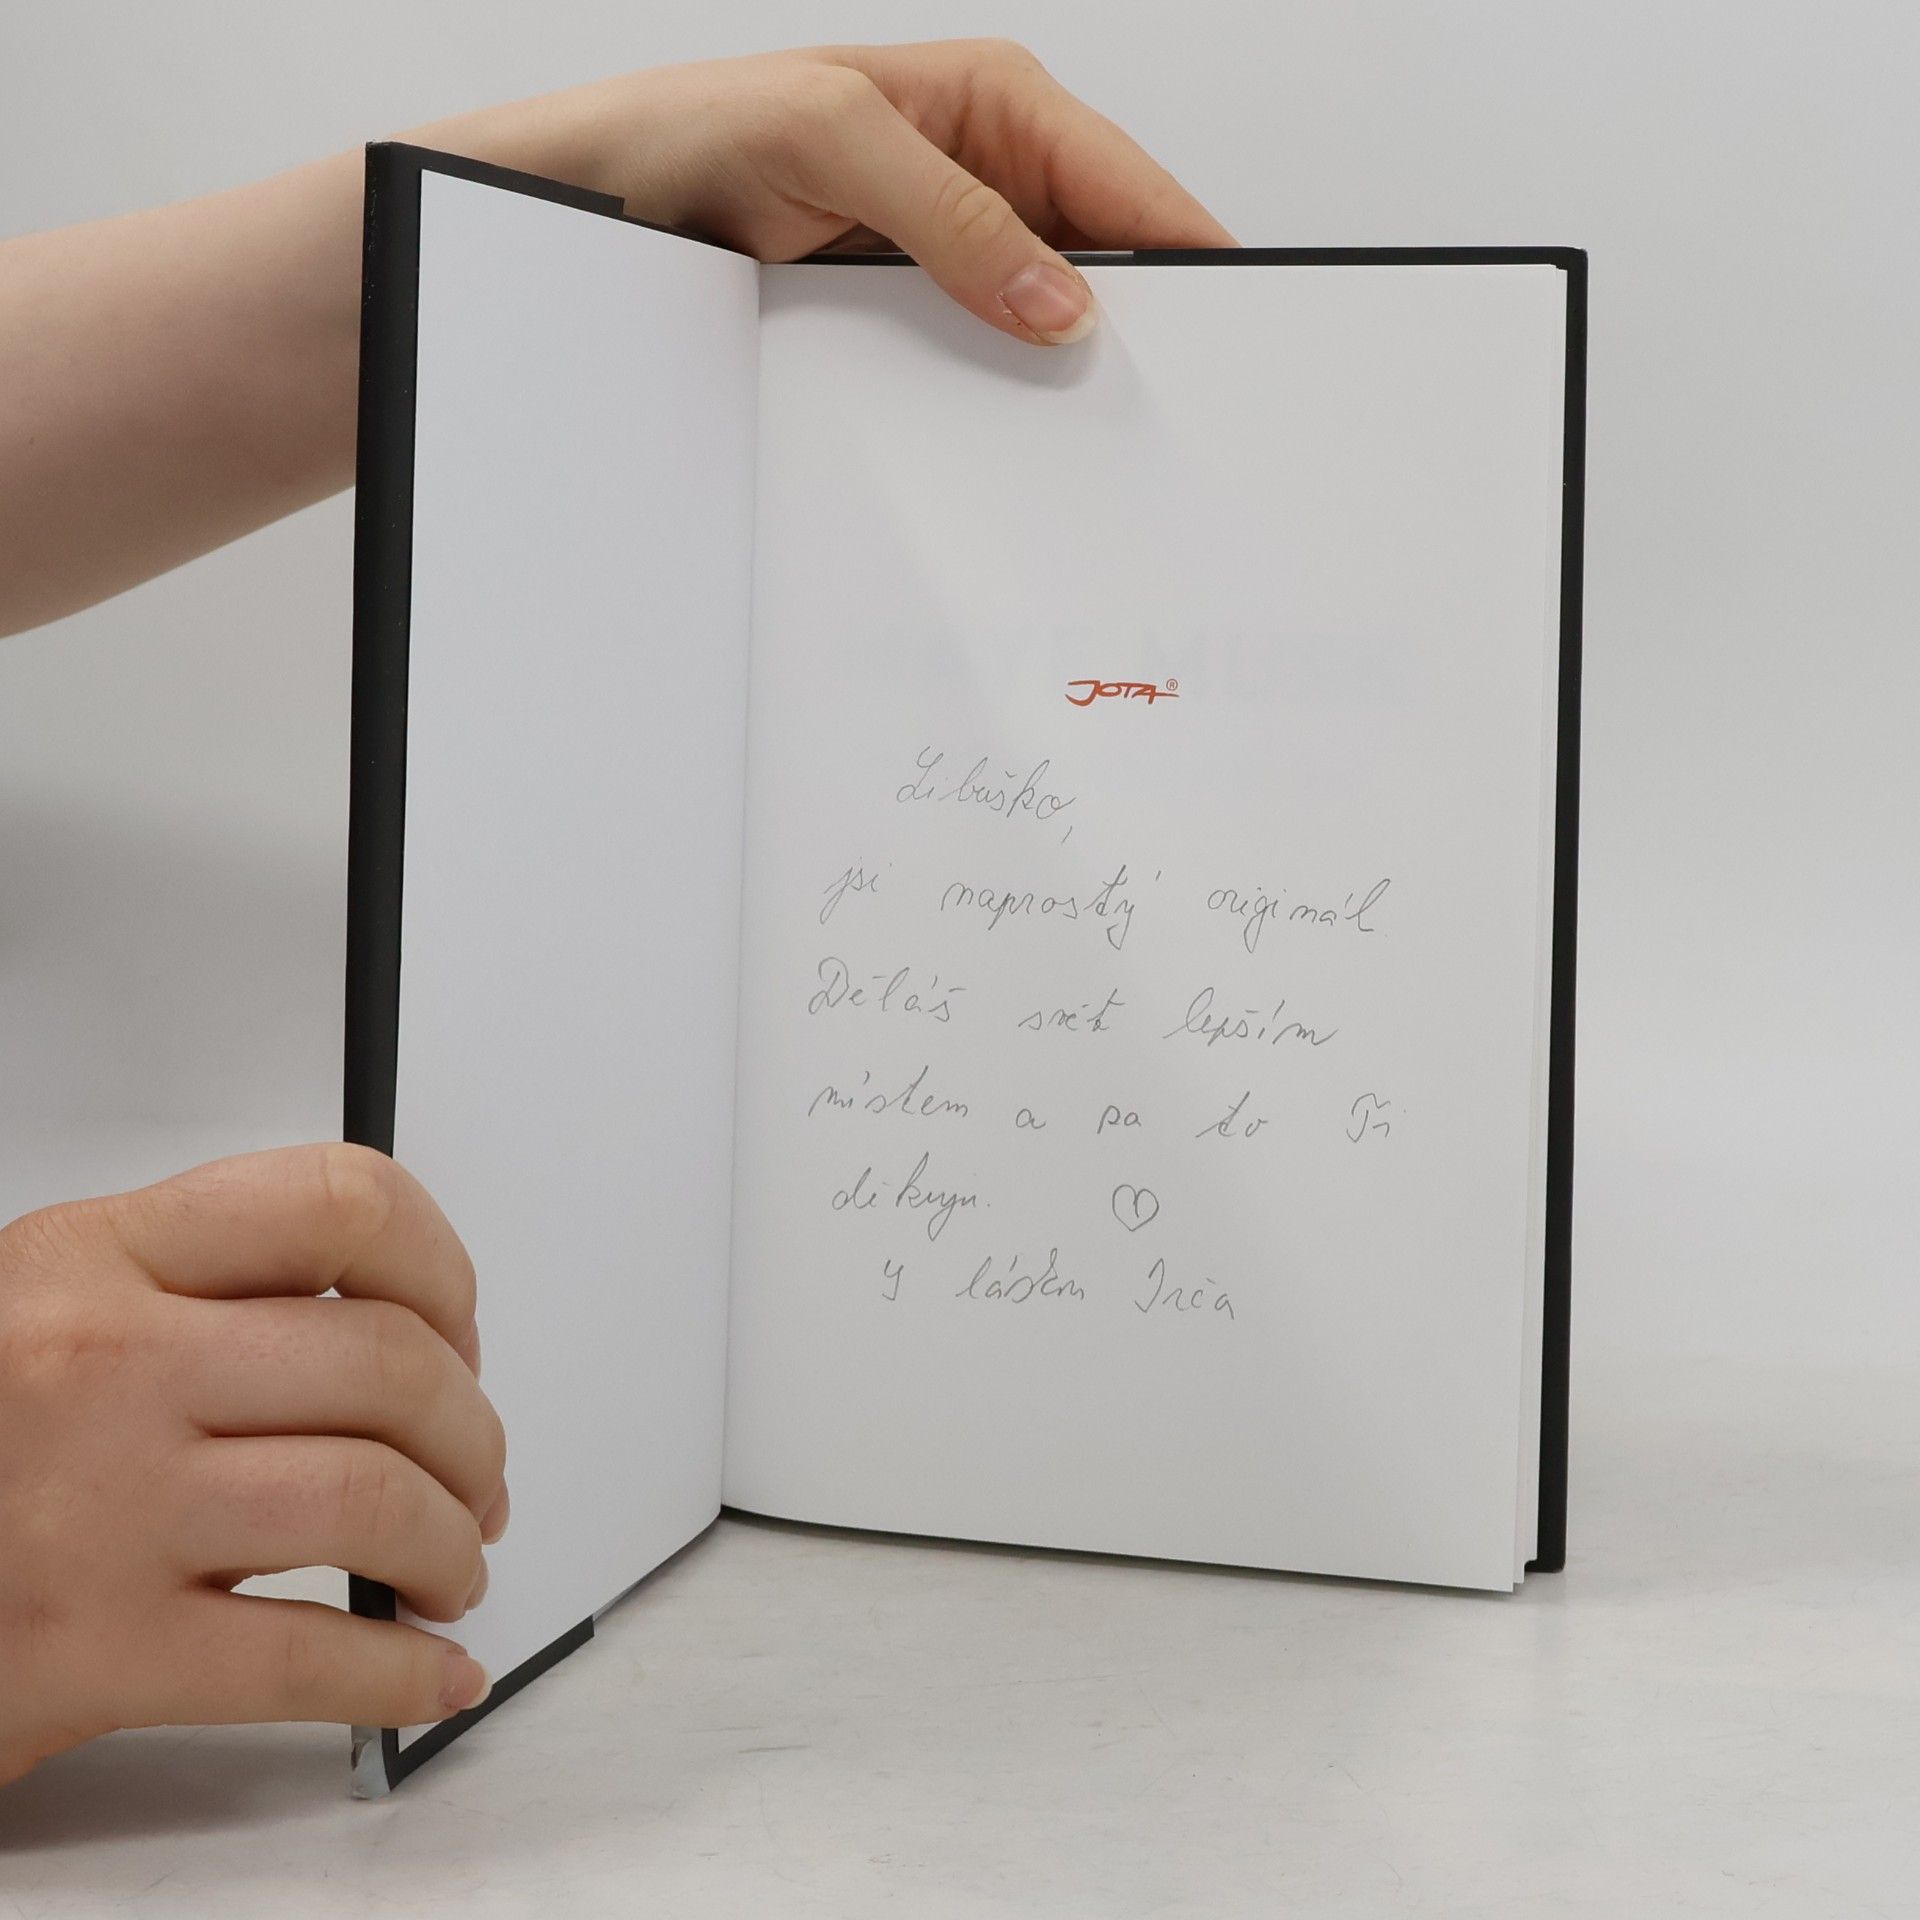 JOTA®
Libuško,
jsi naprostý originál.
Děláš svět lepším
místem a za to Ti
děkuju. ♡
S láskou Irča